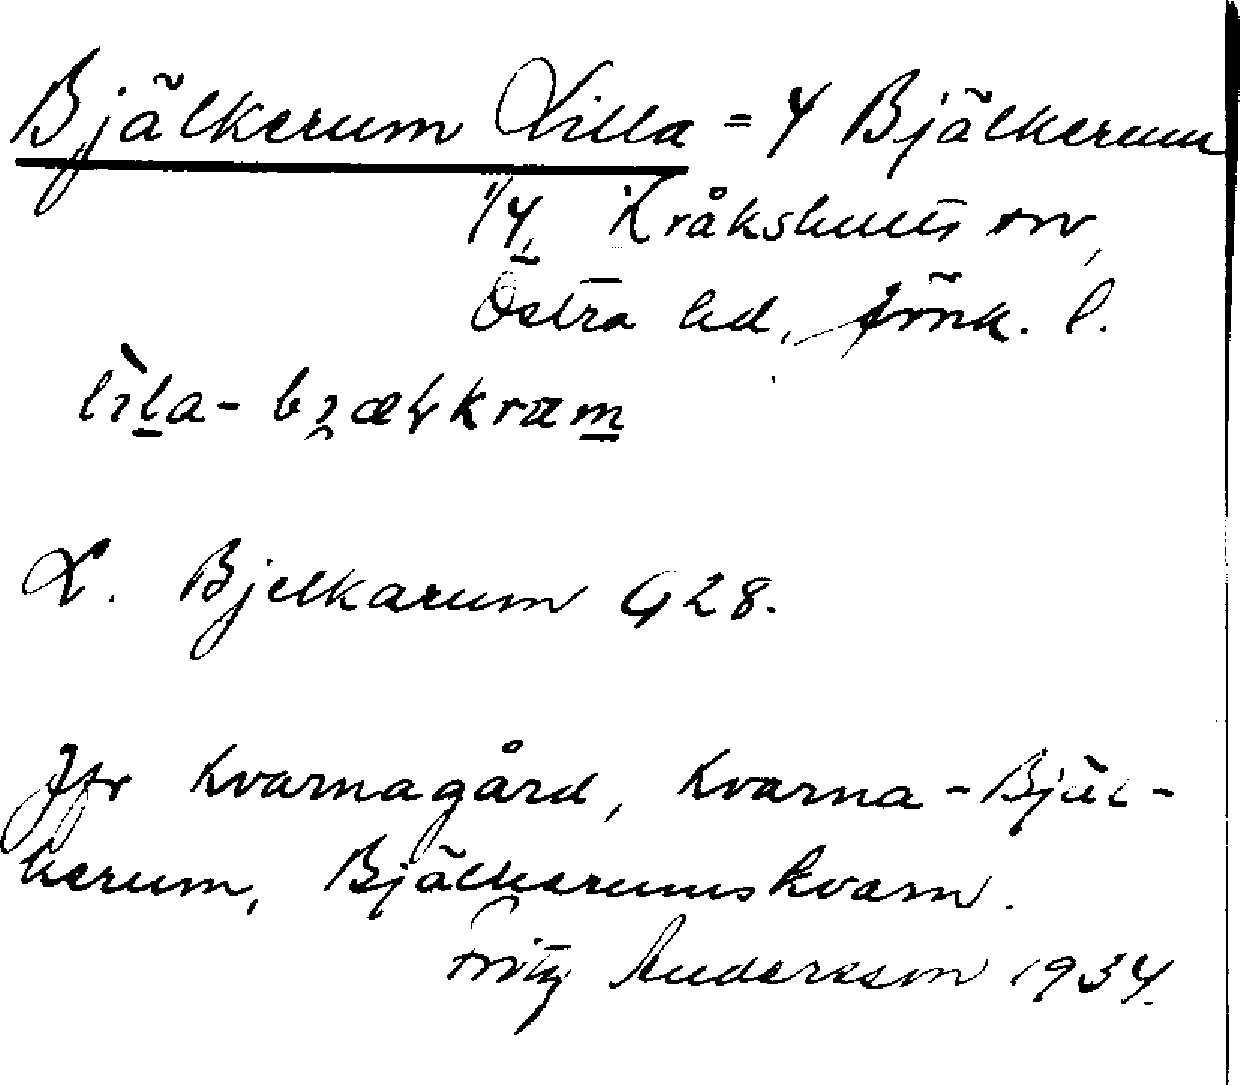 Bjälkerum Lilla = 4 Bjälkerum
1/4, Kråkshults sn,
Östra hd, Jönk. l.
lìla-
L. Bjelkarum G28.
Jfr Kvarnagård, Kvarna-Bjäl-
kerum, Bjälkerumskvarn.
Fritz Andersson 1934.